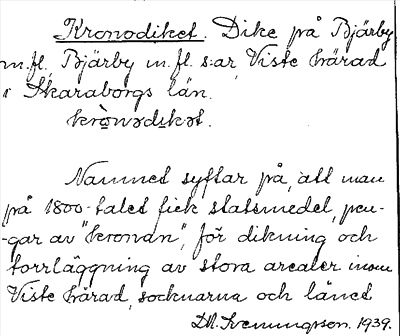 Kronodiket. Dike på Bjärby
m.fl. Bjärby m.fl. s:ar, Viste härad
i Skaraborgs län.
krònədikət.
Namnet syftar på, att man
på 1800-talet fick statsmedel, pen-
-gar av "kronan", för dikning och
torrläggning av stora arealer inom
Viste härad, socknarna och länet
Svenungsson. 1939.